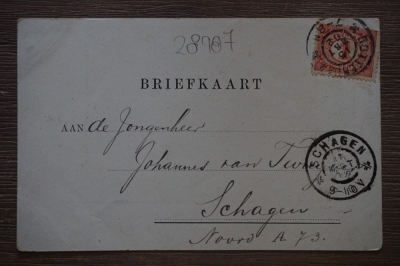 28707
BRIEFKAART
AAN de Jongenheer
Johannes van
Schagen
Noord A 73.
SCHAGEN